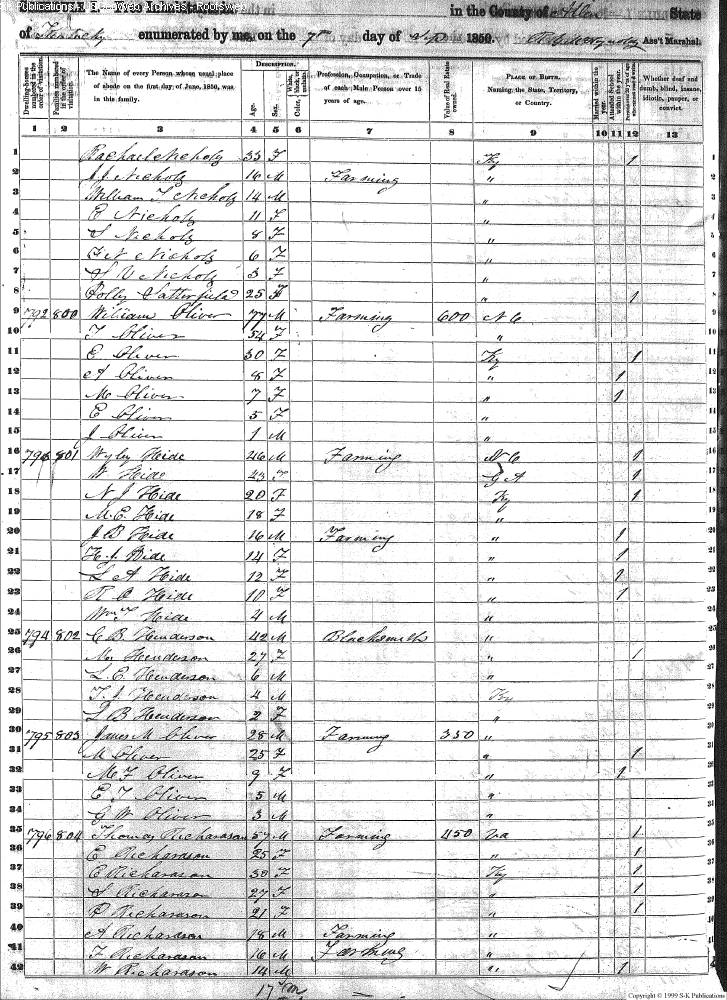 in the County of Allen State
of Kentucky enumerated by me, on the 7th day of Sep 1850. Ass't Marshal.
Dwelling-houses numbered in the order of visitation.
Families numbered in the order of visitation.
The Name of every Person whose usual place of abode on the first day of June, 1850, was in this family.
DESCRIPTION.
Age.
Sex.
Color, White, black, or mulatto.
Profession, Occupation, or Trade of each Male Person over 15 years of age.
Value of Real Estate owned.
PLACE OF BIRTH. Naming the State, Territory, or Country.
Married within the year.
Attended School within the year.
Whether deaf and dumb, blind, insane, idiotic, pauper, or convict.
1 2 3 4 5 6 7 8 9 10 11 12 13
1 Rachael Nichols 33 F Ky 1
2 J J Nichols 16 M Farming "
3 William T Nichols 14 M "
4 E Nichols 11 F "
5 S Nichols 8 F "
6 Nichols 6 F "
7 S V Nichols 3 F "
8 Polly Satterfield 25 F " 1
9 792 800 William Oliver 77 M Farming 600 N C
10 T Oliver 54 F "
11 E Oliver 30 F Ky 1
12 A Oliver 8 F " 1
13 M Oliver 7 F " 1
14 E Oliver 5 F "
15 J Oliver 1 M "
16 801 Wyley Hide 46 M Farming N C 1
17 W Hide 43 F G A 1
18 N J Hide 20 F Ky 1
19 M. E. Hide 18 F "
20 J B Hide 16 M Farming " 1
21 H. J. Hide 14 F " 1
22 L A Hide 12 F " 1
23 Hide 10 F " 1
24 Wm T Hide 4 M "
25 794 802 C B Henderson 42 M Blacksmith "
26 M Henderson 27 F " 1
27 L. E. Henderson 6 M "
28 T. J Henderson 4 M Ky
29 L B Henderson 2 F "
30 795 803 James M Oliver 28 M Farming 350 "
31 M Oliver 25 F " 1
32 M F Oliver 9 F " 1
33 E T Oliver 5 M "
34 G W Oliver 3 M "
35 796 804 Thomas Richardson 57 M Farming 450 Va 1
36 E Richardson 25 F " 1
37 E Richardson 30 F Ky 1
38 S Richardson 27 F " 1
39 P Richardson 21 F " 1
40 A Richardson 18 M Farming "
41 F Richardson 16 M Farming "
42 W Richardson 14 M " 1
Copyright © 1999 S-K Publications